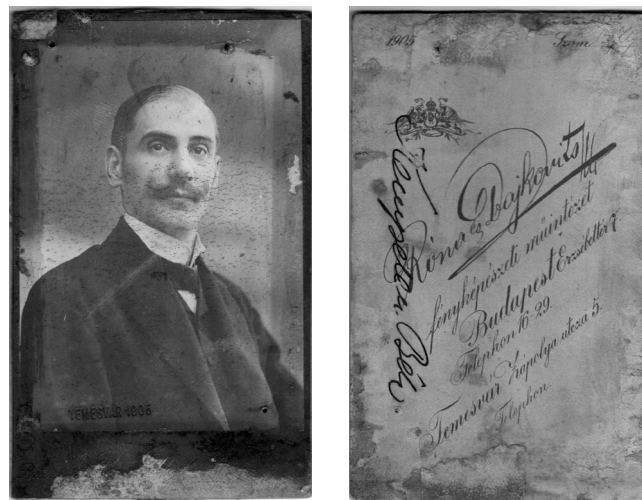 TEMESVÁR 1905
1905
Róna és Dajkovits
fényképészeti műintézet
Budapest Erzsébettér 7
Telephon 16-29.
Temesvár Zápolya utcza 5.
Telephon.